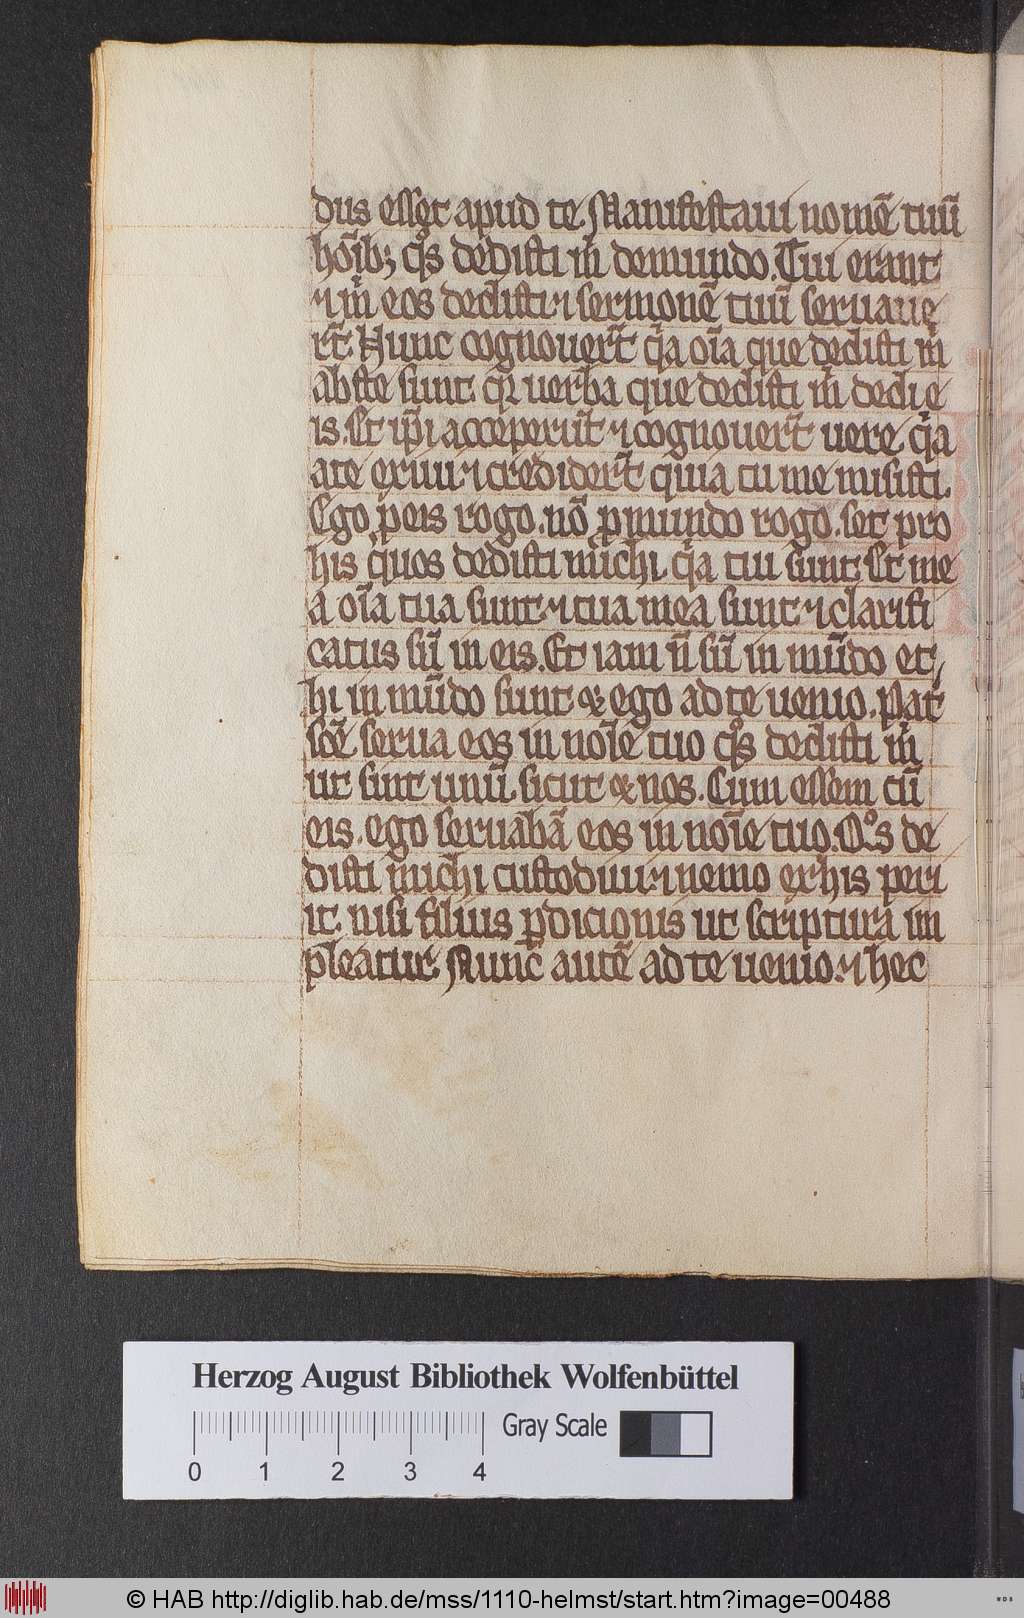 dus esset apud te. Manifestaui nomē tuū
hoīb; q̊s dedisti m̄ demundo. Tui erant
⁊ m̄ eos dedisti ⁊ sermonē tuū seruaue
rt̄. Nunc cognouer̄t q̄a oīa que dedisti m̄
abste sunt. qr uerba que dedisti m̄ dedi e
is. Et ip̄i acceperūt ⁊ cognouer̄t uere q̄a
ate exiui ⁊ credider̄t quia tu me misisti.
Ego peis rogo. nō pmundo rogo. set pro
his quos dedisti michi. q̄a tui sunt. Et me
a oīa tua sunt ⁊ tua mea sunt ⁊ clarifi
catus sū in eis. Et iam n̄ sū in mūdo et
hi in mūdo sunt & ego ad te uenio. Pat̄
scē serua eos in noīe tuo q̊s dedisti m̄
ut sint unū. sicut & nos. Cum essem cū
eis. ego seruabā eos in noīe tuo. Q̊s de
disti michi custodiui ⁊ nemo ex his peri
it nisi filius pdicionis ut scriptura im
pleatur. Nunc autē ad te uenio. ⁊ hec
Herzog August Bibliothek Wolfenbüttel
Gray Scale
0 1 2 3 4
© HAB http://diglib.hab.de/mss/1110-helmst/start.htm?image=00488